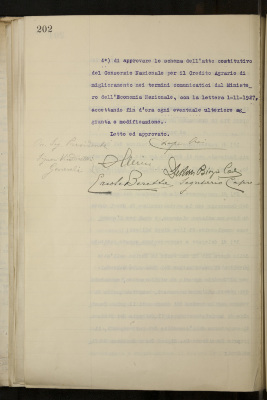 202
1°) di approvare lo schema dell'atto costitutivo
del Consorzio Nazionale per il Credito Agrario di
miglioramento nei termini comunicati dal Ministe-
ro dell'Economia Nazionale, con la lettera 1-11-1927,
accettando fin d'ora ogni eventuale ulteriore ag-
giunta e modificazione.-
Letto ed approvato.
Presidente
Generale
Ercole Beretta Segretario